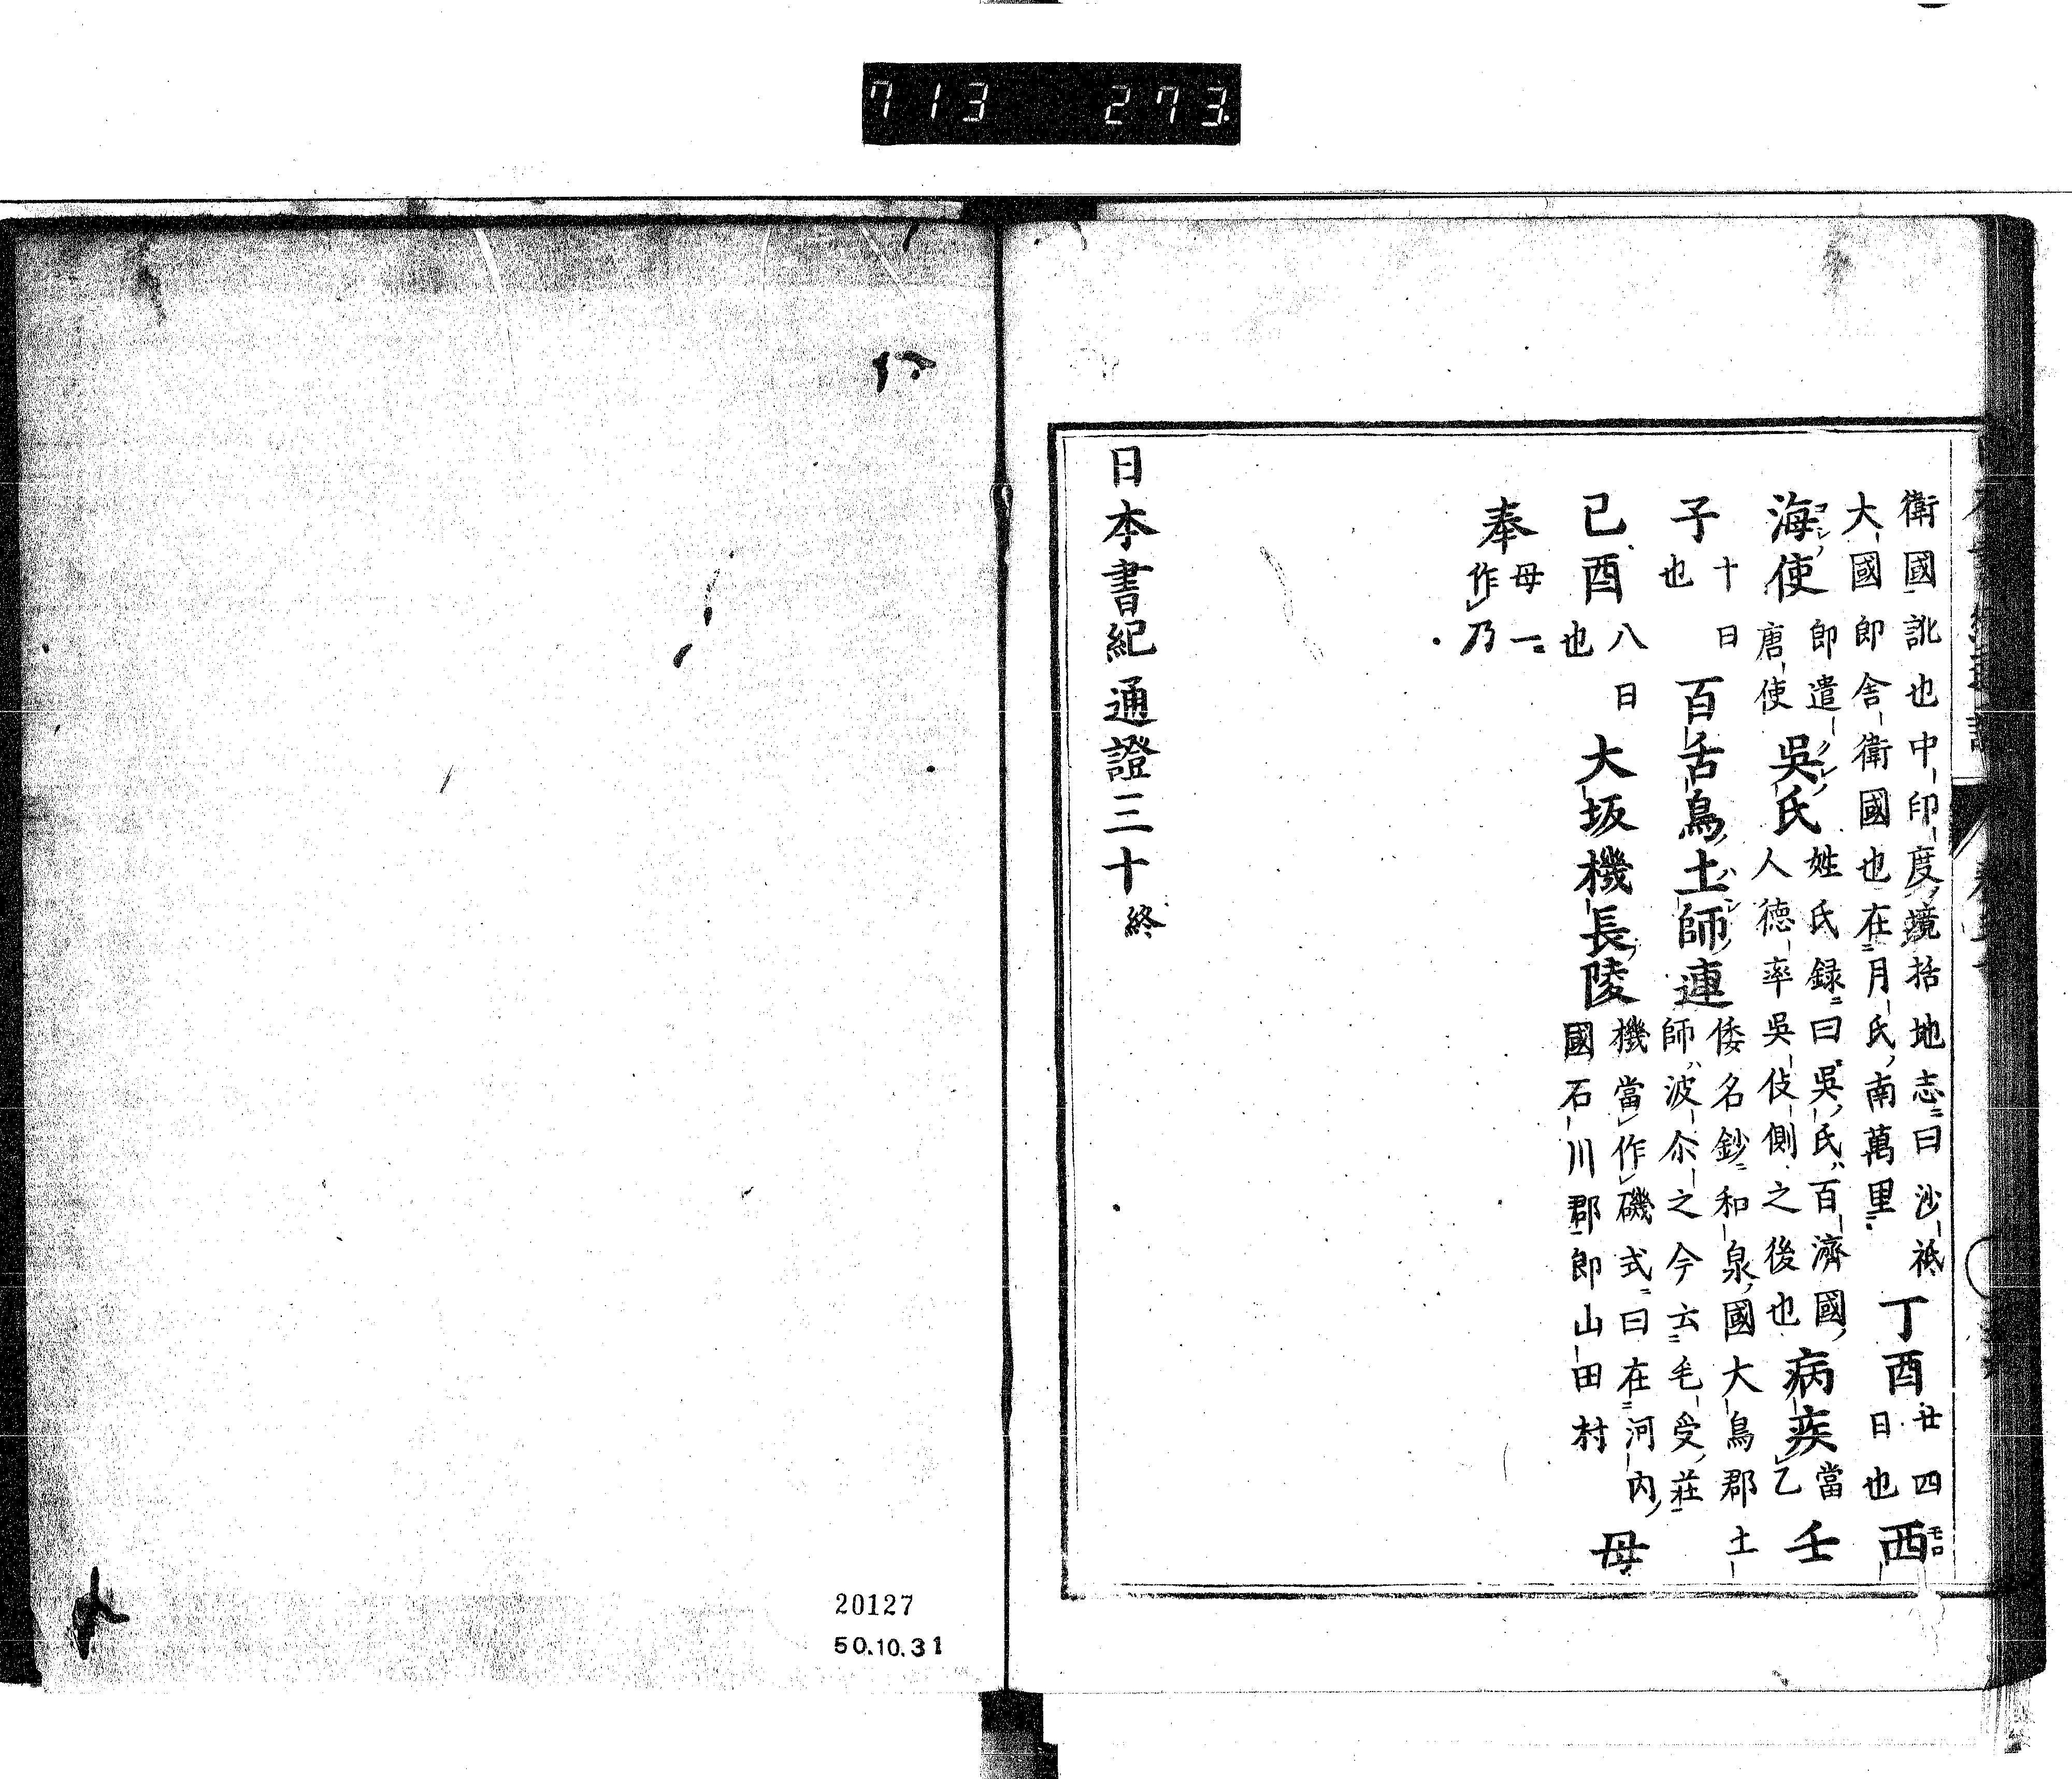 713 273
衛國訛也中印度境括地志曰沙祇大國即舍衛國也在月氏南萬里 丁酉 廿四日也 西
海使 即遣唐使 吳氏 姓氏録曰吳氏百濟國人德率吳伎側之後也 病疾 當乙 壬
子 十日也 百舌鳥土師連 倭名鈔和泉國大鳥郡土師波尒之今云毛受莊
己酉 八日也 大坂機長陵 機當作磯式曰在河内國石川郡郎山田村 母
奉 母一作乃
日本書紀通證三十 終
20127
50.10.31